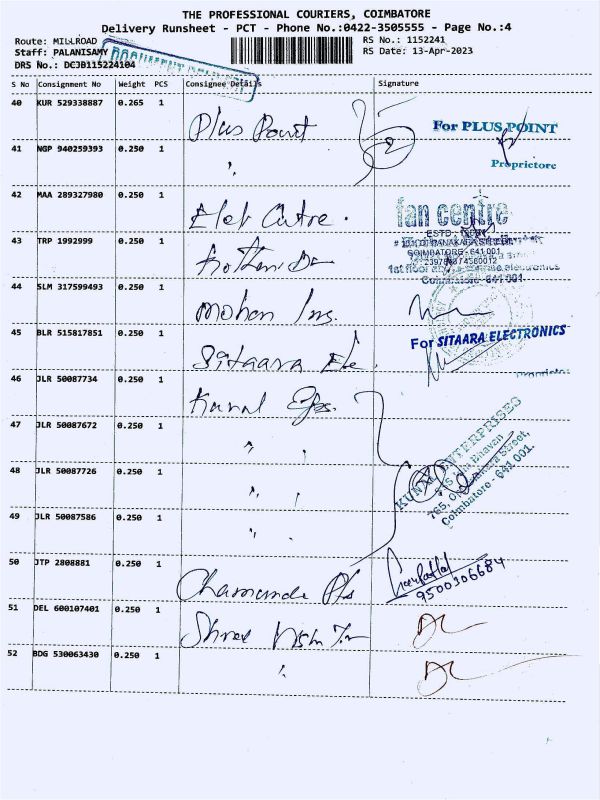 THE PROFESSIONAL COURIERS, COIMBATORE
Delivery Runsheet - PCT - Phone No.:0422-3505555 - Page No.:4
Route: MILLROAD
Staff: PALANISAMY
DRS No.: DCJB115224104
RS No.: 1152241
RS Date: 13-Apr-2023
S No Consignment No Weight PCS Consignee Details Signature
40 KUR 529338887 0.265 1 Plus Point
For PLUS POINT
Proprietore
41 NGP 940259393 0.250 1 "
42 MAA 289327980 0.250 1 Elet Cntre.
fan centre
43 TRP 1992999 0.250 1
COIMBATORE - 641 001.
44 SLM 317599493 0.250 1 Mohan Ins.
45 BLR 515817851 0.250 1 Sitaara Ele
For SITAARA ELECTRONICS
Proprietor
46 JLR 50087734 0.250 1
47 JLR 50087672 0.250 1 " "
48 JLR 50087726 0.250 1 " "
49 JLR 50087586 0.250 1 " "
ENTERPRISES
Coimbatore - 641 001.
50 JTP 2808881 0.250 1
9500306684
51 DEL 600107401 0.250 1 Shree
52 BDG 530063430 0.250 1 "